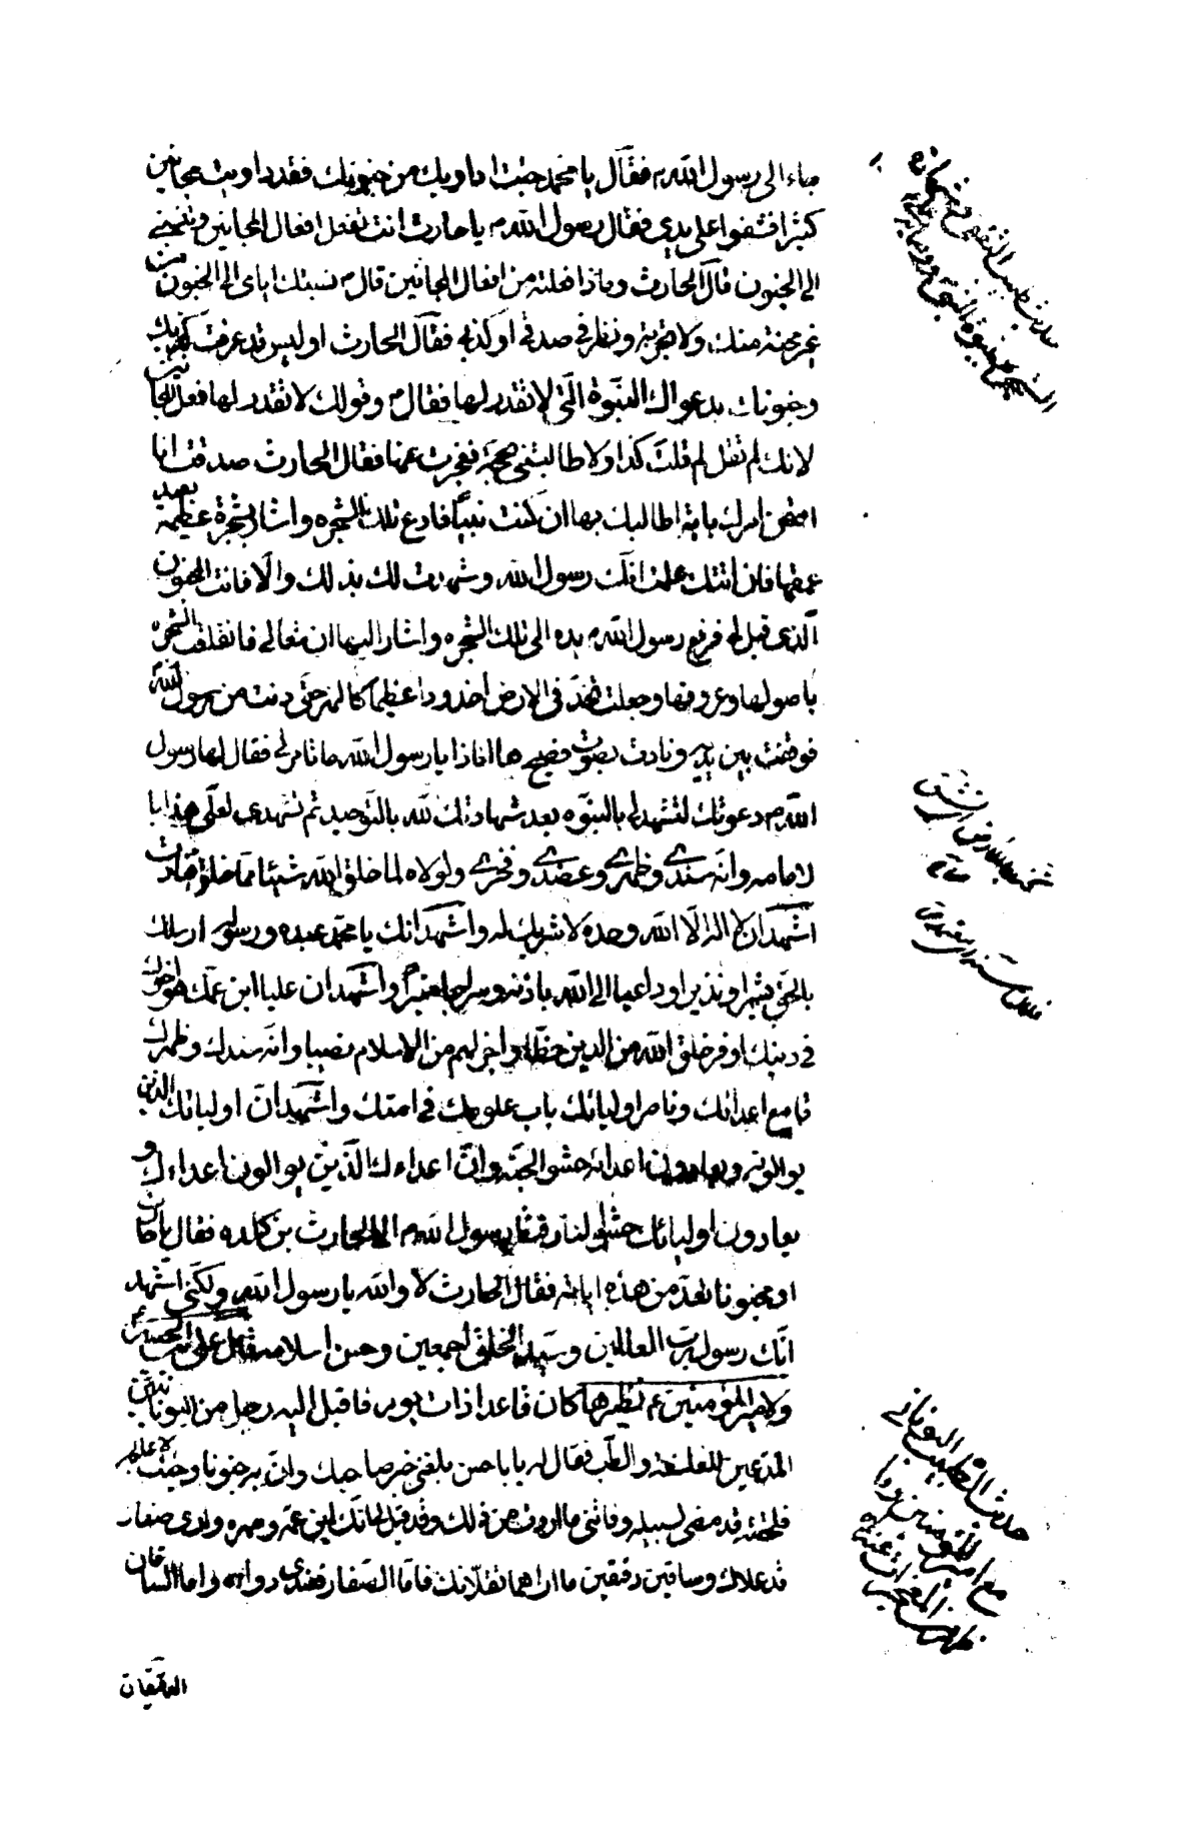 جاء الى رسول الله م فقال يا محمد جئت اداويك من جنونك فقد داويت مجانين
كثيرا فشفوا على يدي فقال رسول الله م يا حارث انت تفعل افعال المجانين وتنسبني
الى الجنون قال الحارث وماذا فعلته من افعال المجانين قال م نسبتك اياى الى الجنون من
غير محنة منك ولا تجربة ونظر في صدقي او كذبي فقال الحارث او ليس قد عرفت كذبك
وجنونك بدعواك النبوة التي لا تقدر لها فقال م وقولك لا تقدر لها فعل المجانين
لانك لم تقل لم قلت كذا ولا طالبتني بحجة فعجزت عنها فقال الحارث صدقت انا
امتحن امرك باية اطالبك بها ان كنت نبيا فادع تلك الشجره واشار بشجرة عظيمة بعيد
عمقها فان اتتك علمت انك رسول الله وشهدت لك بذلك والا فانت المجنون
الذى قيل لي فرفع رسول الله م يده الى تلك الشجره واشار اليها ان تعالي فانقلعت الشجره
باصولها وعروقها وجعلت تخد في الارض اخدودا عظيما كالنهر حتى دنت من رسول الله
فوقفت بين يديه ونادت بصوت فصيح ها انا ذا يا رسول الله ما تامرني فقال لها رسول
الله م دعوتك لتشهدي لي بالنبوه بعد شهادتك لله بالتوحيد ثم تشهدى لعلى هذا با
لامامه وانه سندي وظهري وعضدي وفخري ولولاه لما خلق الله شيئا مما خلق فنادت
اشهد ان لا اله الا الله وحده لا شريك له واشهد انك يا محمد عبده ورسوله ارسلك
بالحق بشيرا ونذيرا وداعيا الى الله باذنه وسراجا منيرا واشهد ان عليا ابن عمك هو اخوك
في دينك اوفر خلق الله من الدين حظا واجزلهم من الاسلام نصيبا وانه سندك وظهرك
قامع اعدائك وناصر اوليائك باب علومك في امتك واشهد ان اوليائك الذين
يوالونه ويعادون اعدائه حشو الجنة وان اعداءك الذين يوالون اعداءك و
يعادون اوليائك حشو النار فنظر رسول الله م الى الحارث بن كلده فقال يا حارث
او مجنونا تعد من هذه اياته فقال الحارث لا والله يا رسول الله ولكني اشهد
انك رسول رب العالمين وسيد الخلق اجمعين وحسن اسلامه فقال على بن الحسين ع
ولامير المؤمنين ع نظيرها كان قاعدا ذات يوم فاقبل اليه رجل من اليونانيين
المدعين للفلسفة والطب فقال له يا ابا حسن بلغني خبر صاحبك وان به جنونا وجئت لاعالجه
فلحقته قد مضى لسبيله وفاتني ما اردت من ذلك وقد قيل لي انك ابن عمه وصهره وارى صفار
قد علاك وساقين دقيقين ما اراهما تقلانك فاما الصفار فعندي دوائه واما الساقان
الدقيقان